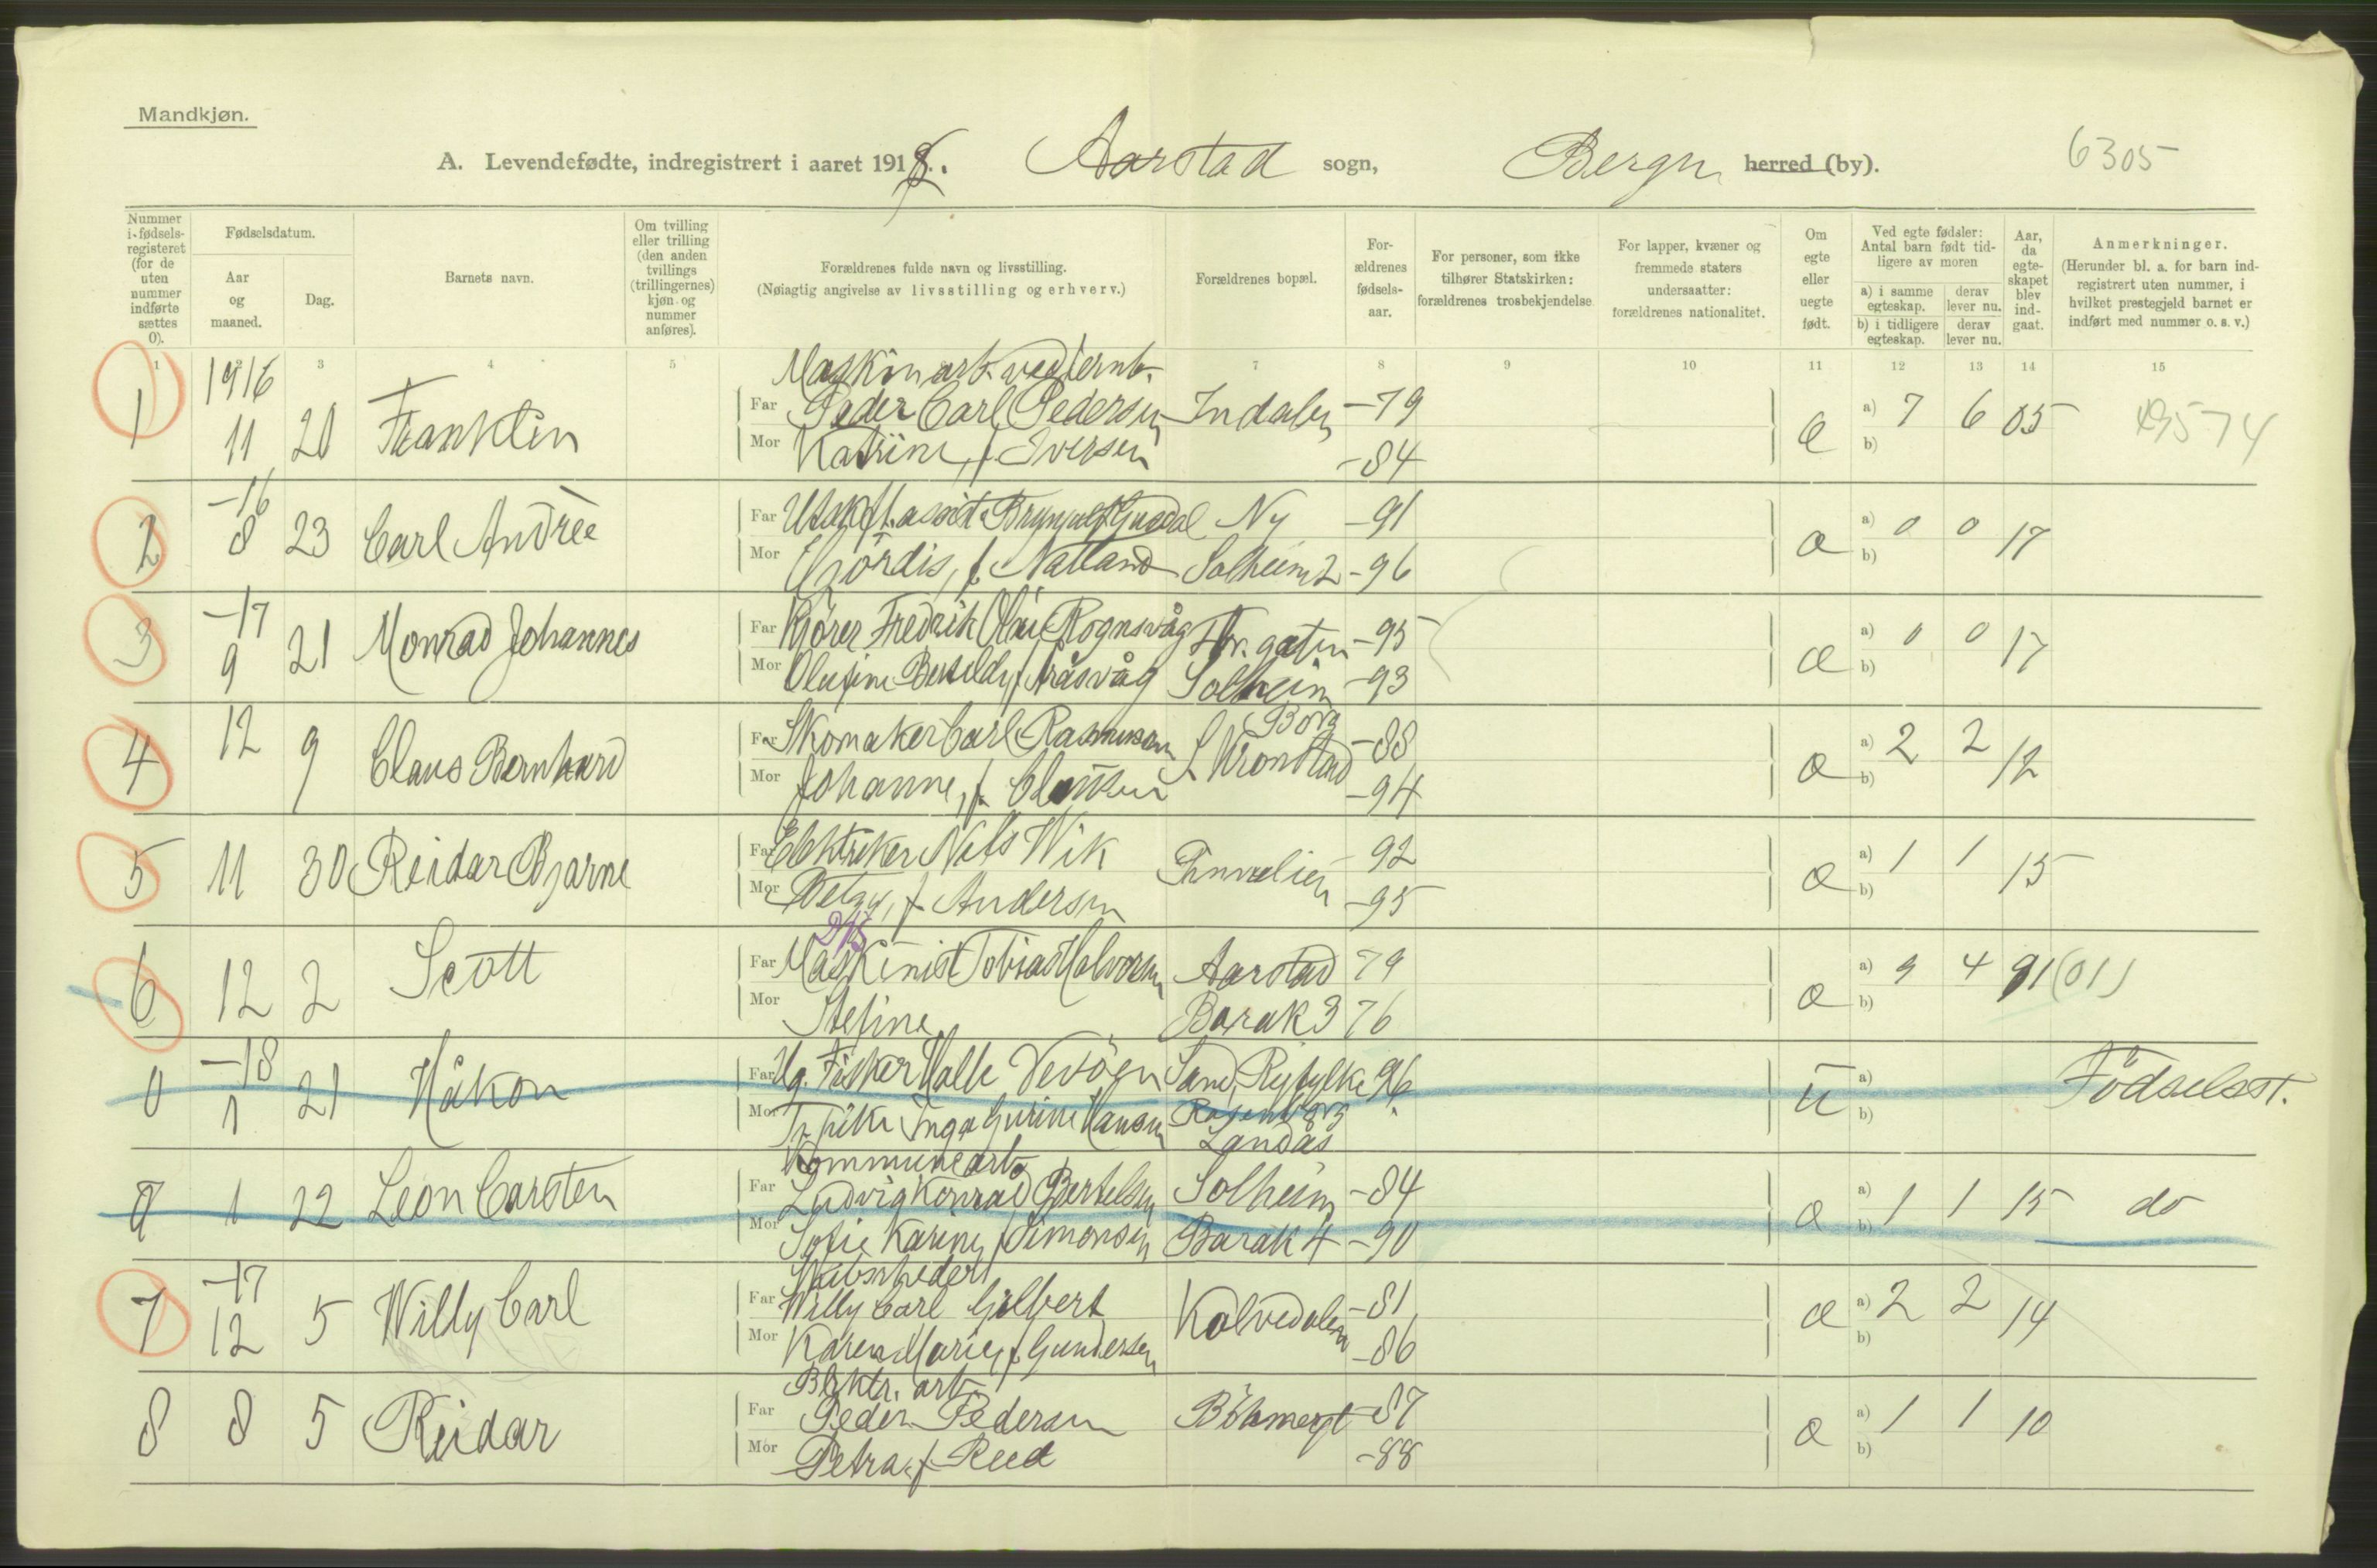 Mandkjøn.
A. Levendefødte, indregistrert i aaret 1918. Aarstad sogn, Bergen herred (by). 6305
Nummer i fødselsregisteret (for de uten nummer indførte sættes 0).
Fødselsdatum.
Aar og maaned.
Dag.
Barnets navn.
Om tvilling eller trilling (den anden tvillings (trillingernes) kjøn og nummer anføres).
Forældrenes fulde navn og livsstilling.
(Nøiagtig angivelse av livsstilling og erhverv.)
Forældrenes bopæl.
Forældrenes fødselsaar.
For personer, som ikke tilhører Statskirken: forældrenes trosbekjendelse
For lapper, kvæner og fremmede staters undersaatter: forældrenes nationalitet.
Om egte eller uegte født.
Ved egte fødsler: Antal barn født tidligere av moren
a) i samme egteskap. derav lever nu.
b) i tidligere egteskap. derav lever nu.
Aar, da egteskapet blev indgaat.
Anmerkninger.
(Herunder bl. a. for barn indregistrert uten nummer, i hvilket prestegjeld barnet er indført med nummer o. s. v.)
1 3 4 5 7 8 9 10 11 12 13 14 15
1916 Maskinarb. ved jernb.
1 11 20 Franklin Far Peder Carl Pedersen Indalen -79 e a) 7 6 05
Mor Katrine, f. Iversen -84 b)
-16
2 8 23 Carl Andreè Far Ny -91 æ a) 0 0 17
Mor Hjørdis, f. Natland Solheim 2 -96 b)
-17
3 9 21 Monrad Johannes Far Kjører Fredrik Olai Rognsvåg gaten -95 æ a) 0 0 17
Mor Olufine f. Solheim -93 b)
4 12 9 Claus Bernhard Far Skomaker Carl Rasmussen Borg -88 æ a) 2 2 12
Mor Johanne, f. Kronstad -94 b)
5 11 30 Reidar Bjarne Far Elektriker Nils Wik -92 æ a) 1 1 15
Mor f. Andersen -95 b)
6 12 2 Scott Far Maskinist Tobias Halvorsen Aarstad 79 æ a) 9 4 91 (01)
Mor Stefine Barak 3 76 b)
-18
0 1 21 Håkon Far Ug. Fisker Sand, Ryfylke 96 u a) Fødselsst.
Mor Inga Gurine Hansen Rosenberg b)
Landås
Kommunearb.
0 1 22 Leon Carsten Far Ludvig Konrad Bertelsen Solheim -84 æ a) 1 1 15 do
Mor Sofie Karine, f. Simonsen Barak 4 -90 b)
-17
7 12 5 Willy Carl Far Willy Carl Gilbert Kalvedalen -81 æ a) 2 2 14
Mor Karen Marie, f. Gundersen -86 b)
Elektr. arb.
8 8 5 Reidar Far Peder Pedersen Böhmergt -87 æ a) 1 1 10
Mor Petra, f. Reed -88 b)